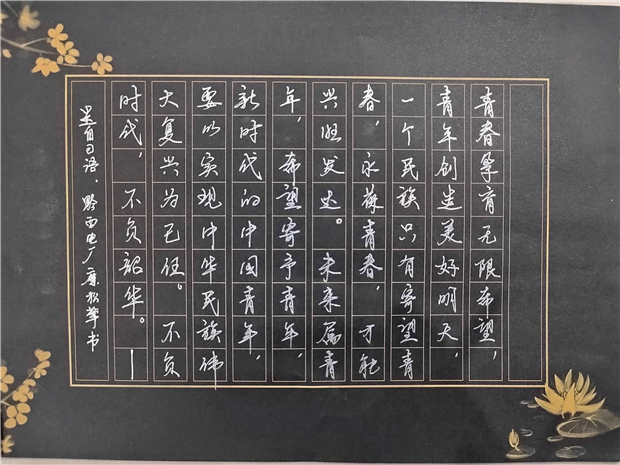 青春孕育无限希望，
青年创造美好明天，
一个民族只有寄望青
春，永葆青春，才能
兴旺发达。未来属青
年，希望寄予青年，
新时代的中国青年，
要以实现中华民族伟
大复兴为己任。不负
时代，不负韶华。—
是自习语．黔西电厂康松华书